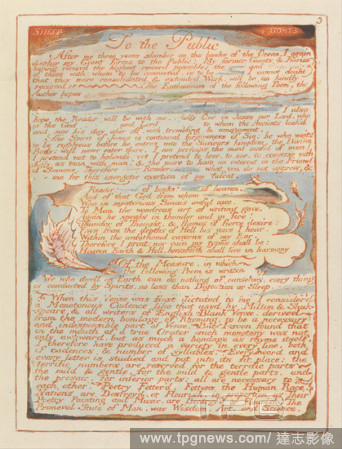 3
SHEEP GOATS
To the Public
After my three years slumber on the banks of the Ocean, I again
display my Giant forms to the Public: My former Giants & Fairies
having reciev'd the highest reward possible: the
of those with whom to be connected, is to be
I cannot doubt
that this more consolidated & extended Work, will be as kindly
recieved
The Enthusiasm of the following Poem, the
Author hopes
I also
hope the Reader will be with me, wholly One in Jesus our Lord, who
is the God and Lord to whom the Ancients look'd
and saw his day afar off, with trembling & amazement.
The Spirit of Jesus is continual forgiveness of Sin: he who waits
to be righteous before he enters into the Saviours kingdom, the Divine
Body; will never enter there. I am perhaps the most sinful of men!
I pretend not to holiness! yet I pretend to love, to see, to converse with
daily, as man with man, & the more to have an interest in the Friend
of Sinners. Therefore Reader, what you do not approve, &
me for this energetic exertion of my talent.
Reader! of books! of heaven,
And of that God from whom
Who in mysterious Sinais awful cave
To Man the wond'rous art of writing gave,
Again he speaks in thunder and in fire!
Thunder of Thought, & flames of fierce desire:
Even from the depths of Hell his voice I hear,
Within the unfathomd caverns of my Ear.
Therefore I print; nor vain my types shall be:
Heaven, Earth & Hell, henceforth shall live in harmony
Of the Measure, in which
the following Poem is written
We who dwell on Earth can do nothing of ourselves, every thing
is conducted by Spirits, no less than Digestion or Sleep.
When this Verse was first dictated to me I consider'd
a Monotonous Cadence like that used by Milton & Shak-
speare, & all writers of English Blank Verse, derived
from the modern bondage of Rhyming; to be a necessary
and indispensible part of Verse. But I soon found that
in the mouth of a true Orator such monotony was not
only awkward, but as much a bondage as rhyme itself.
I therefore have produced a variety in every line, both
of cadences & number of syllables. Every word and
every letter is studied and put into its fit place: the
terrific numbers are reserved for the terrific parts—
the mild & gentle, for the mild & gentle parts, and
the prosaic, for inferior parts: all are necessary to
each other. Poetry Fetter'd, Fetters the Human Race!
Nations are Destroy'd, or Flourish, in proportion as Their
Poetry Painting and Music, are Destroy'd or Flourish! The
Primeval State of Man, was Wisdom, Art, and Science.
www.tpgnews.com/達志影像